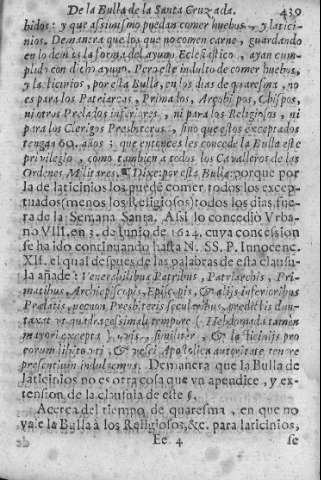 De la Bulla de la Santa Cruzada. 439
bidos: y que assimismo puedan comer huebos, y latici-
nios. Demanera que los que no comen carne, guardando
en lo demàs la forma del ayuno Eclesiastico, ayan cum-
plido con dicho ayuno. Pero este indulto de comer huebos,
y lacticinios, por esta Bulla, en los dias de quaresma, no
es para los Patriarcas, Primados, Arçobispos, Obispos,
ni otros Prelados inferiores, ni para los Religiosos, ni
para los Clerigos Presbiteros, sino que estos exceptados
tengan 60. años; que entonces les concede la Bulla este
privilegio, como tambien a todos los Cavalleros de las
Ordenes Militares. Dixe: por esta Bulla: porque por
la de laticinios los puede comer todos los excep-
tuados (menos los Religiosos) todos los dias, fue-
ra de la Semana Santa. Assi lo concediò Vrba-
no VIII. en 3. de Iunio de 1624. cuya concession
se ha ido continuando hasta N. SS. P. Innocenc.
XII. el qual despues de las palabras de esta clausu-
la añade: Venerabilibus Patribus, Patriarchis, Pri-
matibus, Archiepiscopis, Episcopis, & alijs inferioribus
Prælatis, necnon Presbiteris secularibus, prædictis dun-
taxat ut quadragessimali tempore (Hebdomada tamen
mayori excepta) ovis, similiter, & lacticinijs pro
eorum libito uti, & vesci Apostolica autoritate tenore
presentium indulgemus. Demanera que la Bulla de
laticinios no es otra cosa que vn apendice, y ex-
tension de la clausula de este §.
Acerca del tiempo de quaresma, en que no
vale la Bulla à los Religiosos, &c. para laticinios,
Ee 4 se